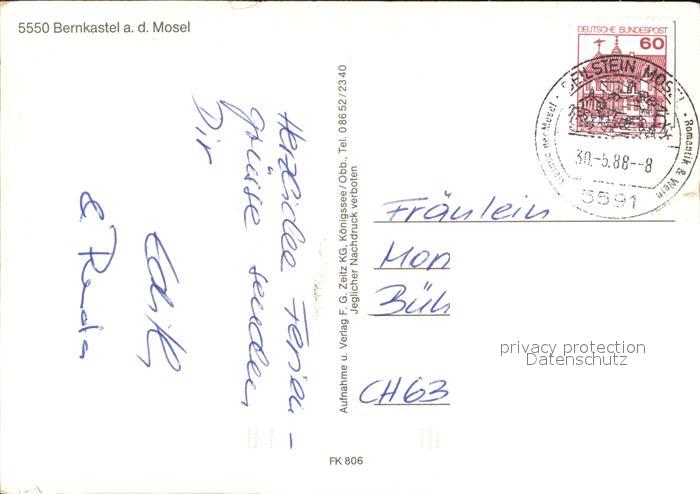 5550 Bernkastel a. d. Mosel
DEUTSCHE BUNDESPOST
60
BEILSTEIN MOSEL
Romantik & Wein
30.-5.88--8
5591
Herzliche Ferien-
grüsse senden
Dir
Edith
&
Aufnahme u. Verlag F. G. Zeitz KG, Königssee/Obb., Tel. 08652/2340
Jeglicher Nachdruck verboten
Fräulein
Mon
Büh
CH 63
privacy protection
Datenschutz
FK 806